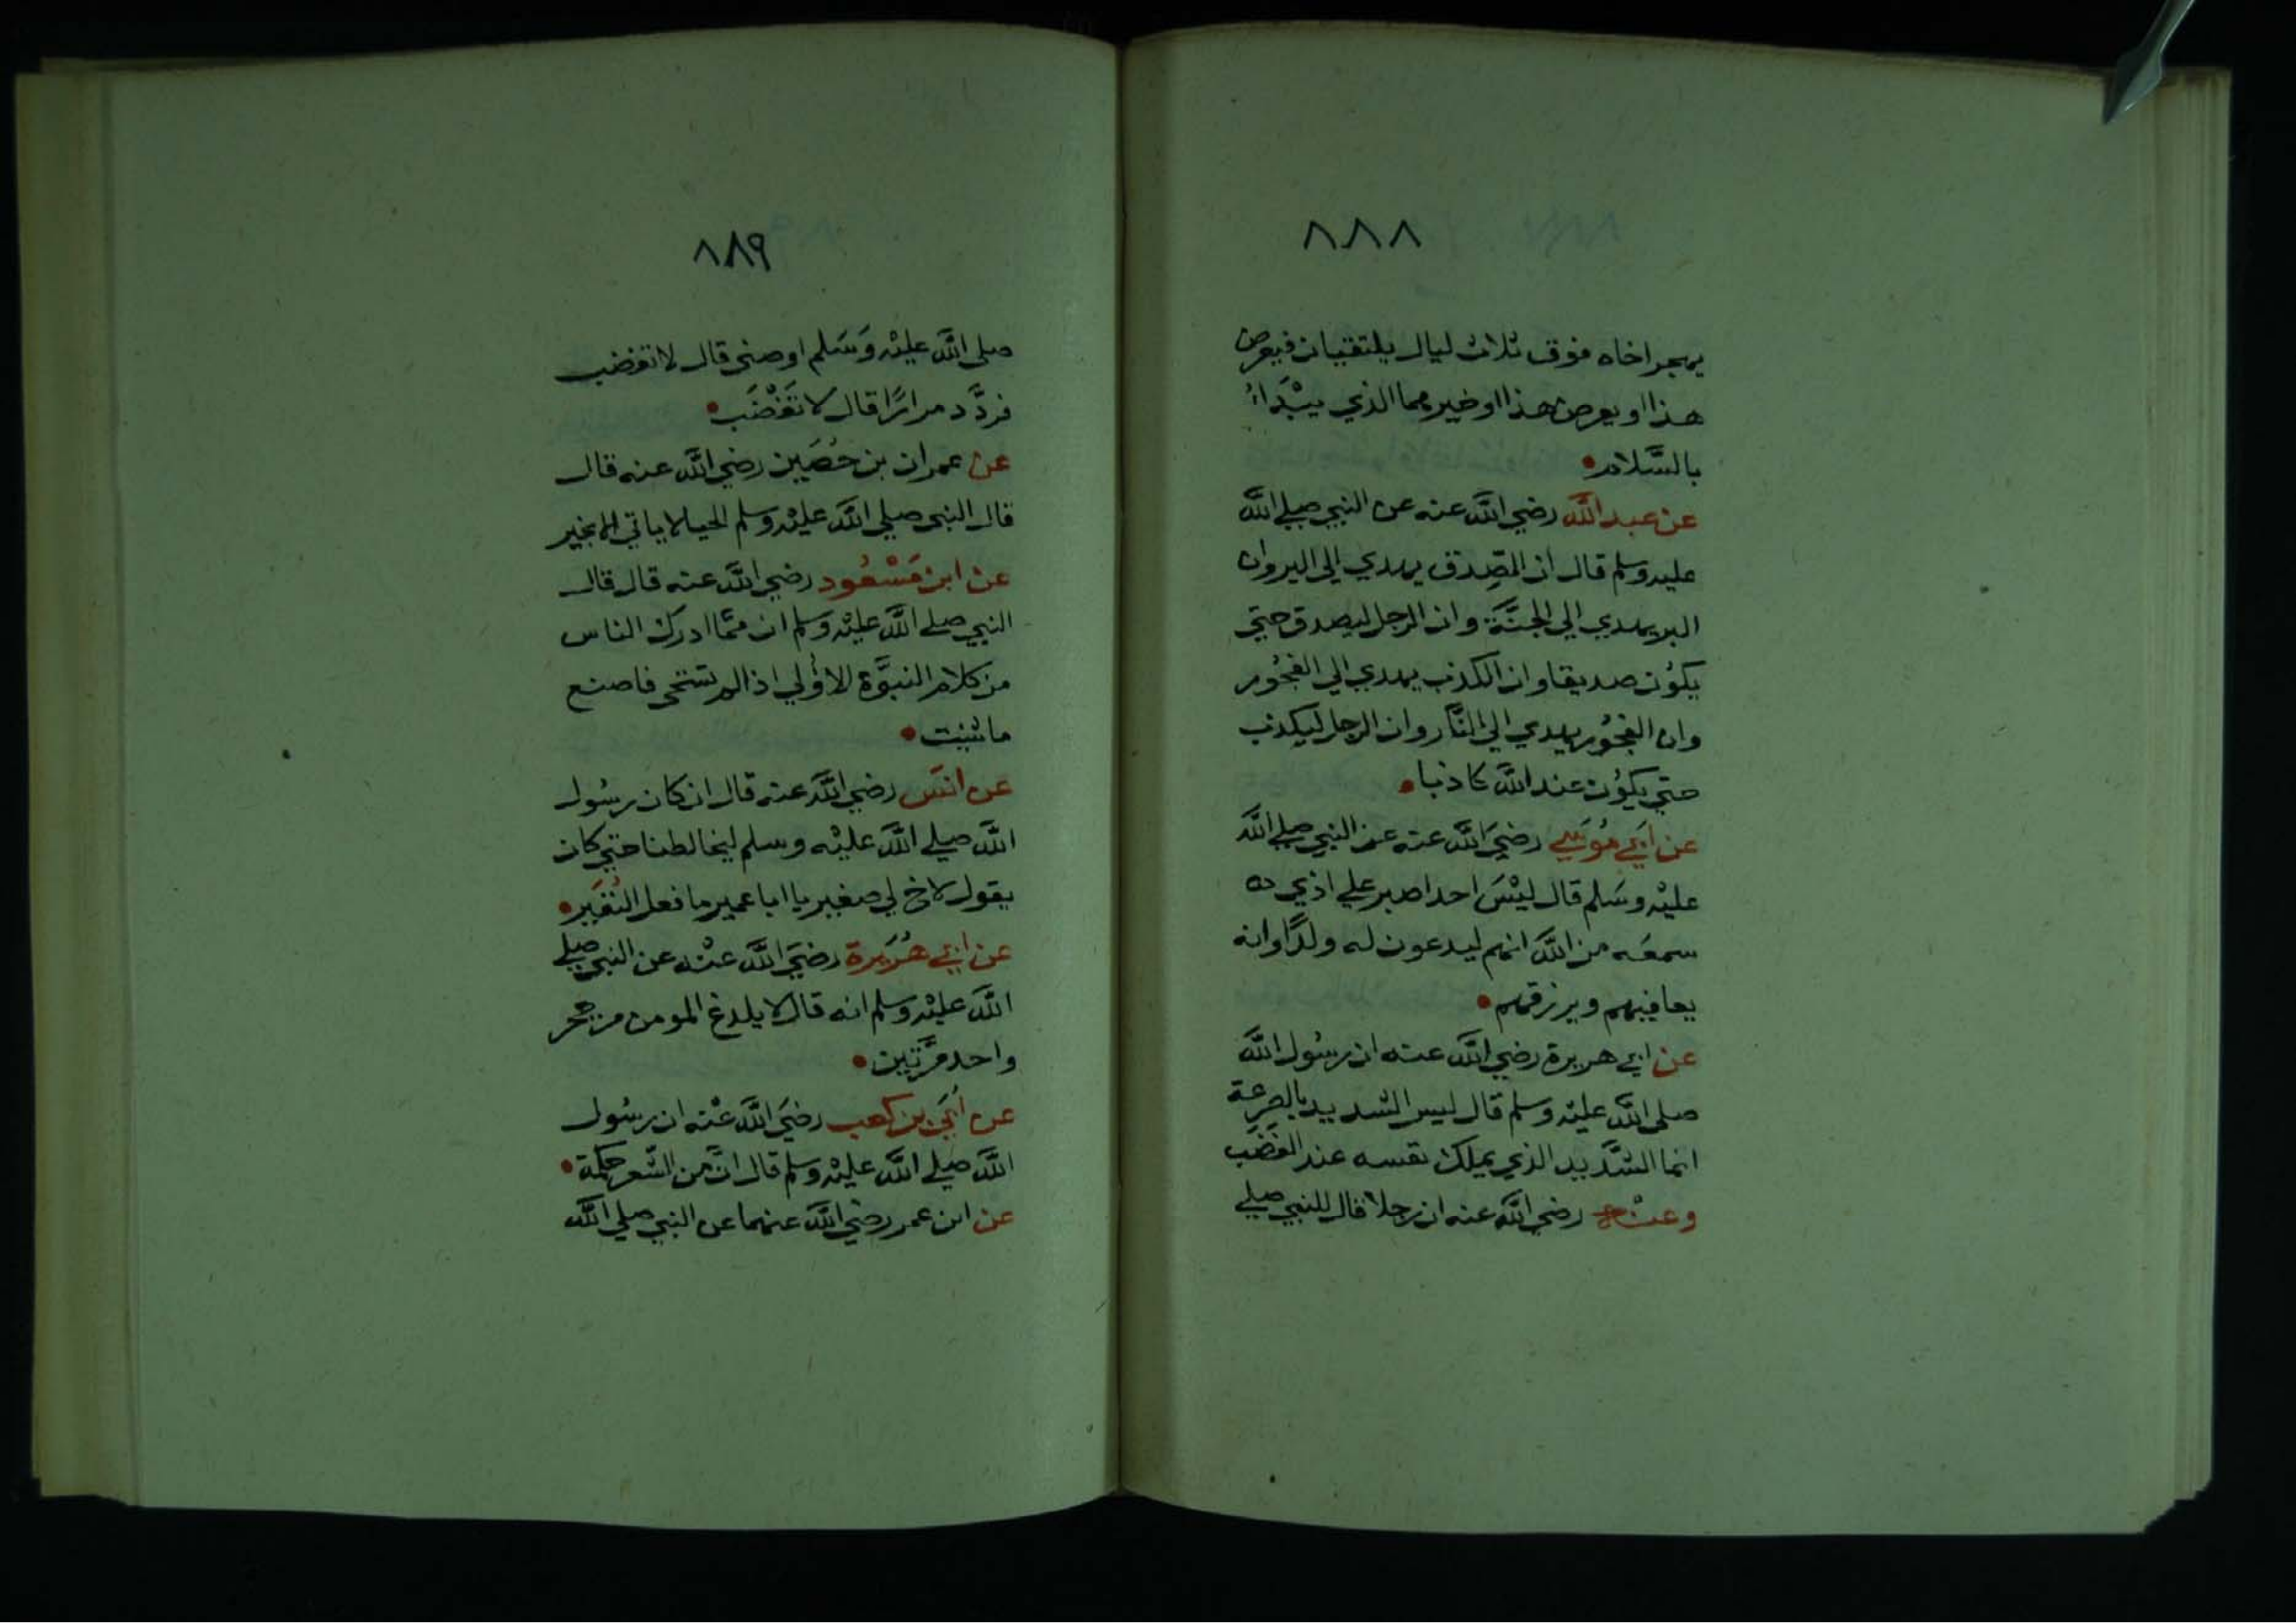 ٨٨٨
يهجر اخاه فوق ثلاث ليال يلتقيان فيعرض
هذا او يعرض هذا او خير مما الذي يبْدَاءُ
بالسَّلام
عن عبد الله رضي الله عنه عن النبي صلي الله
عليه وسلم قال ان الصِّدق يهدي الي البر وان
البر يهدي الي الجنَّة وان الرجل ليصدق حتي
يكوُن صديقا وان الكذب يهدي الي الفجُور
وان الفجُور يهدي الي النَّار وان الرجل ليكذب
حتي يكوُن عند الله كاذبا
عن اَبي مُوسَي رضيَ الله عنه عن النبي صلي الله
عليْه وسَلم قال ليْسَ احد اصبر علي اذي
سمعَه من الله انهم ليدعون له ولدًا وانه
يعافيهم ويرزقهم
عن ابي هريرة رضي الله عنه ان رسُول الله
صلي الله عليْه وسلم قال ليس الشديد بالصرعة
انما الشَّديد الذي يملك نفسه عند الغضَب
وعنْه رضي الله عنه ان رجلا قال للنبي صلي
٨٨٩
صلي الله عليْه وَسَلم اوصني قال لا تغضب
فردَّد مرارًا قال لا تَغْضَب
عن عمران بن حُصَين رضي الله عنه قال
قال النبي صلي الله عليْه وسلم الحيا لا ياتي الا بخير
عن ابن مَسْعُود رضي الله عنه قال قال
النبي صلي الله عليْه وسلم ان ممَّا ادرك الناس
من كلام النبوَّة الاوُلي اذا لم تستحي فاصنع
ما شئت
عن انسَ رضي الله عنه قال ان كان رسُول
الله صلي الله عليْه وسلم ليخالطنا حتي كان
يقول لاخ لي صغير يا ابا عمير ما فعل النُغَير
عن ابي هُرَيرة رضيَ الله عنْه عن النبي صلي
الله عليْه وسلم انه قال لا يلدغ المومن من جحر
واحد مرَّتين
عن اُبَي بن كعب رضيَ الله عنْه ان رسُول
الله صلي الله عليْه وسلم قال انَّ من الشّعر حكمة
عن ابن عمر رضي الله عنهما عن النبي صلي الله